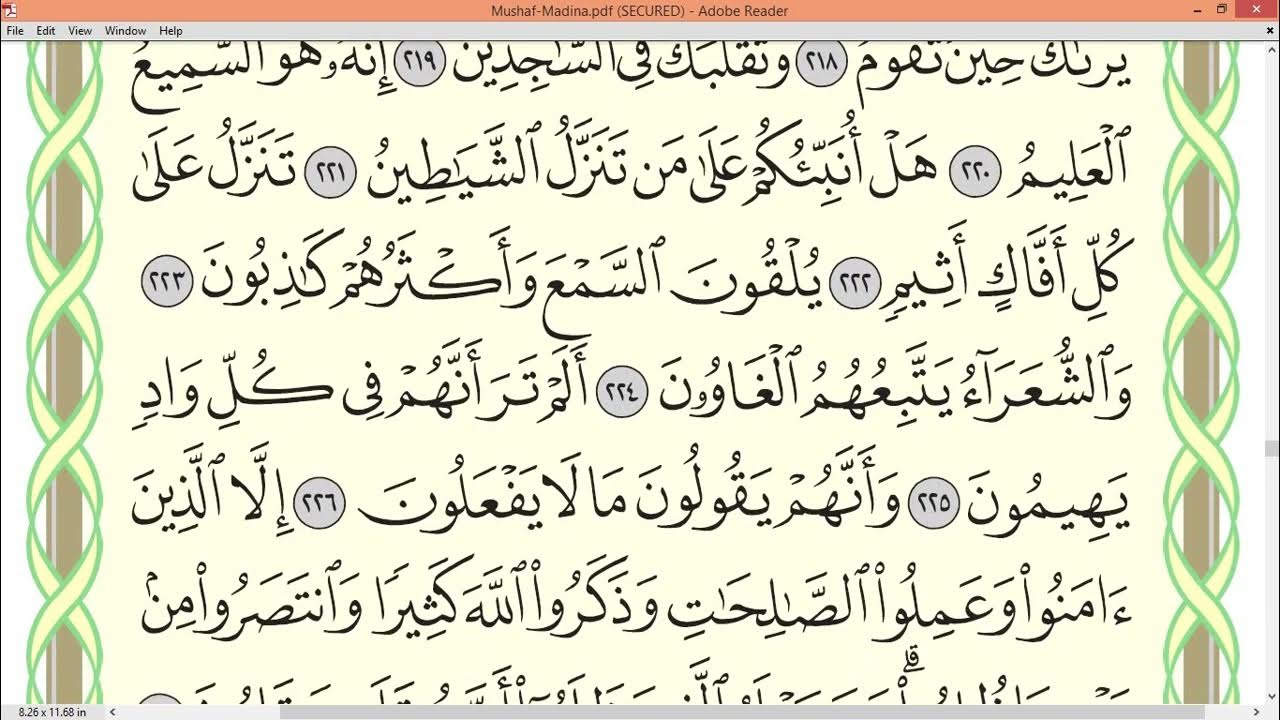 Mushaf-Madina.pdf (SECURED) - Adobe Reader
File Edit View Window Help
يَرَىٰكَ حِينَ تَقُومُ ٢١٨ وَتَقَلُّبَكَ فِي ٱلسَّـٰجِدِينَ ٢١٩ إِنَّهُۥ هُوَ ٱلسَّمِيعُ
ٱلْعَلِيمُ ٢٢٠ هَلْ أُنَبِّئُكُمْ عَلَىٰ مَن تَنَزَّلُ ٱلشَّيَـٰطِينُ ٢٢١ تَنَزَّلُ عَلَىٰ
كُلِّ أَفَّاكٍ أَثِيمٍ ٢٢٢ يُلْقُونَ ٱلسَّمْعَ وَأَكْثَرُهُمْ كَـٰذِبُونَ ٢٢٣
وَٱلشُّعَرَآءُ يَتَّبِعُهُمُ ٱلْغَاوُۥنَ ٢٢٤ أَلَمْ تَرَ أَنَّهُمْ فِي كُلِّ وَادٍ
يَهِيمُونَ ٢٢٥ وَأَنَّهُمْ يَقُولُونَ مَا لَا يَفْعَلُونَ ٢٢٦ إِلَّا ٱلَّذِينَ
ءَامَنُوا۟ وَعَمِلُوا۟ ٱلصَّـٰلِحَـٰتِ وَذَكَرُوا۟ ٱللَّهَ كَثِيرًا وَٱنتَصَرُوا۟ مِنۢ
8.26 x 11.68 in